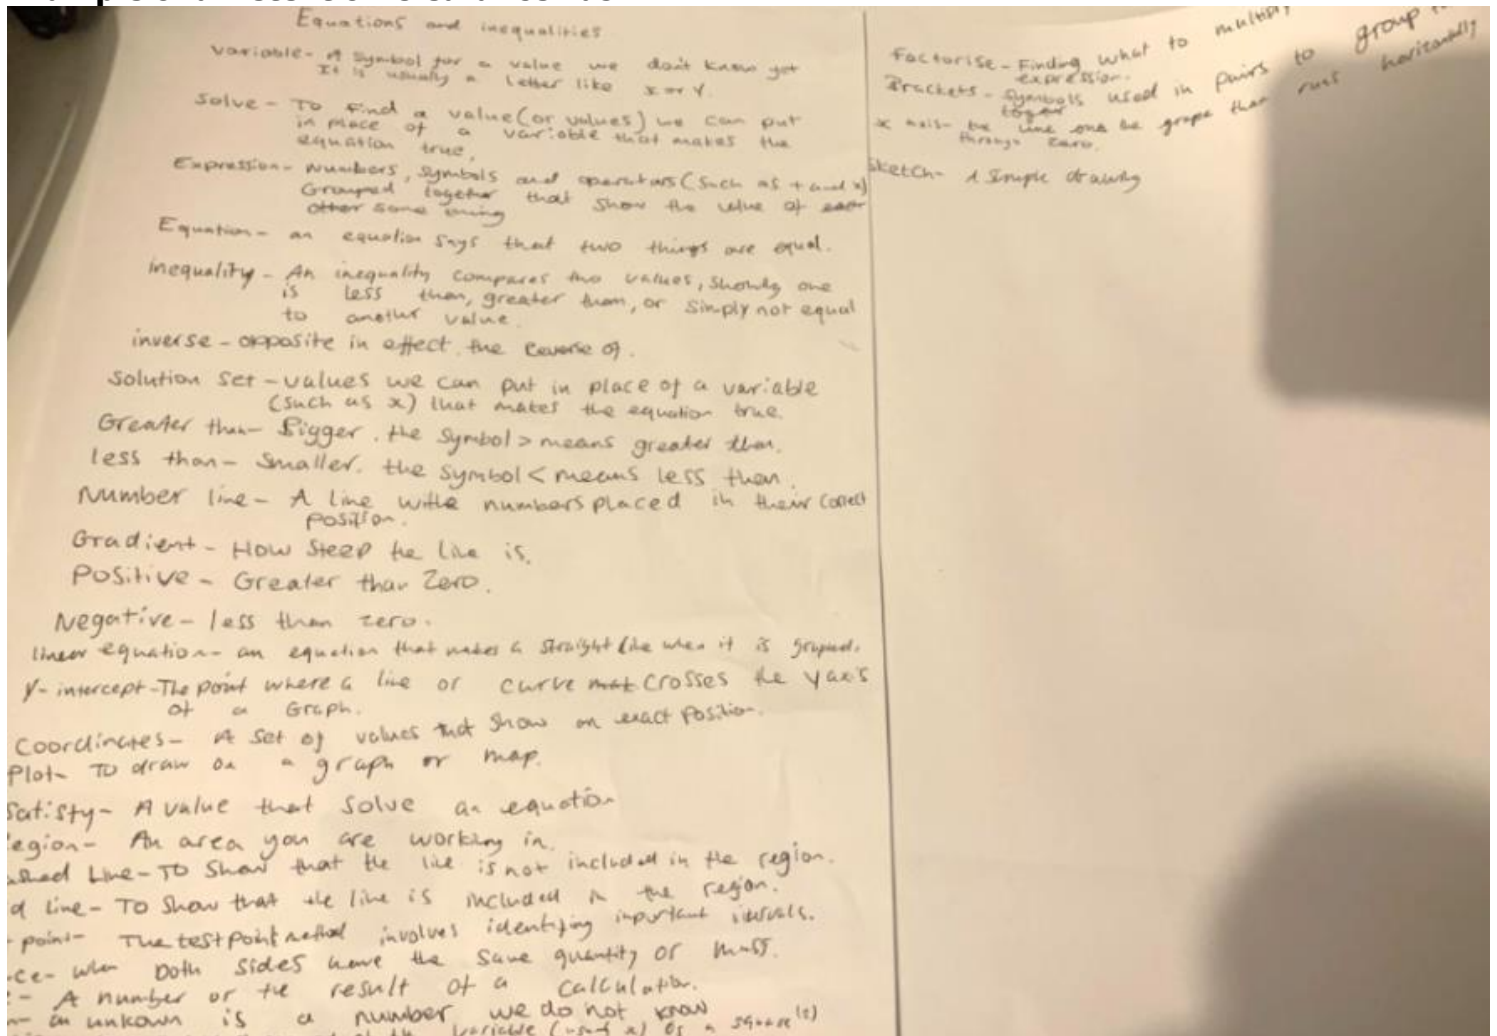 Equations and inequalities
Variable - A symbol for a value we don't know yet
It is usually a letter like x or y.
Solve - To find a value (or values) we can put
in place of a variable that makes the
equation true.
Expression - Numbers, symbols and operators (such as + and x)
Grouped together that show the value of
some thing
Equation - an equation says that two things are equal.
inequality - An inequality compares two values, showing one
is less than, greater than, or simply not equal
to another value.
inverse - opposite in effect. the reverse of.
Solution Set - values we can put in place of a variable
(such as x) that makes the equation true.
Greater than - Bigger. the symbol > means greater than.
less than - Smaller. the symbol < means less than.
Number line - A line with numbers placed in their correct
position.
Gradient - How steep the line is.
Positive - Greater than zero.
Negative - less than zero.
linear equation - an equation that makes a straight line when it is graphed.
Y-intercept - The point where a line or curve crosses the y axis
of a Graph.
Coordinates - A set of values that show an exact position.
Plot - To draw on a graph or map.
Satisfy - A value that solve an equation
egion - An area you are working in.
shed Line - To show that the line is not included in the region.
d line - To show that the line is included in the region.
point - The test point method involves identifying important
ce - when both sides have the same quantity or mass.
- A number or the result of a calculation.
- an unkown is a number we do not know
variable (x) or a square
Factorise - Finding what to multiply
expression.
Brackets - Symbols used in pairs to group
x axis - the line on the graph that runs horizontally
through zero.
Sketch - A simple drawing